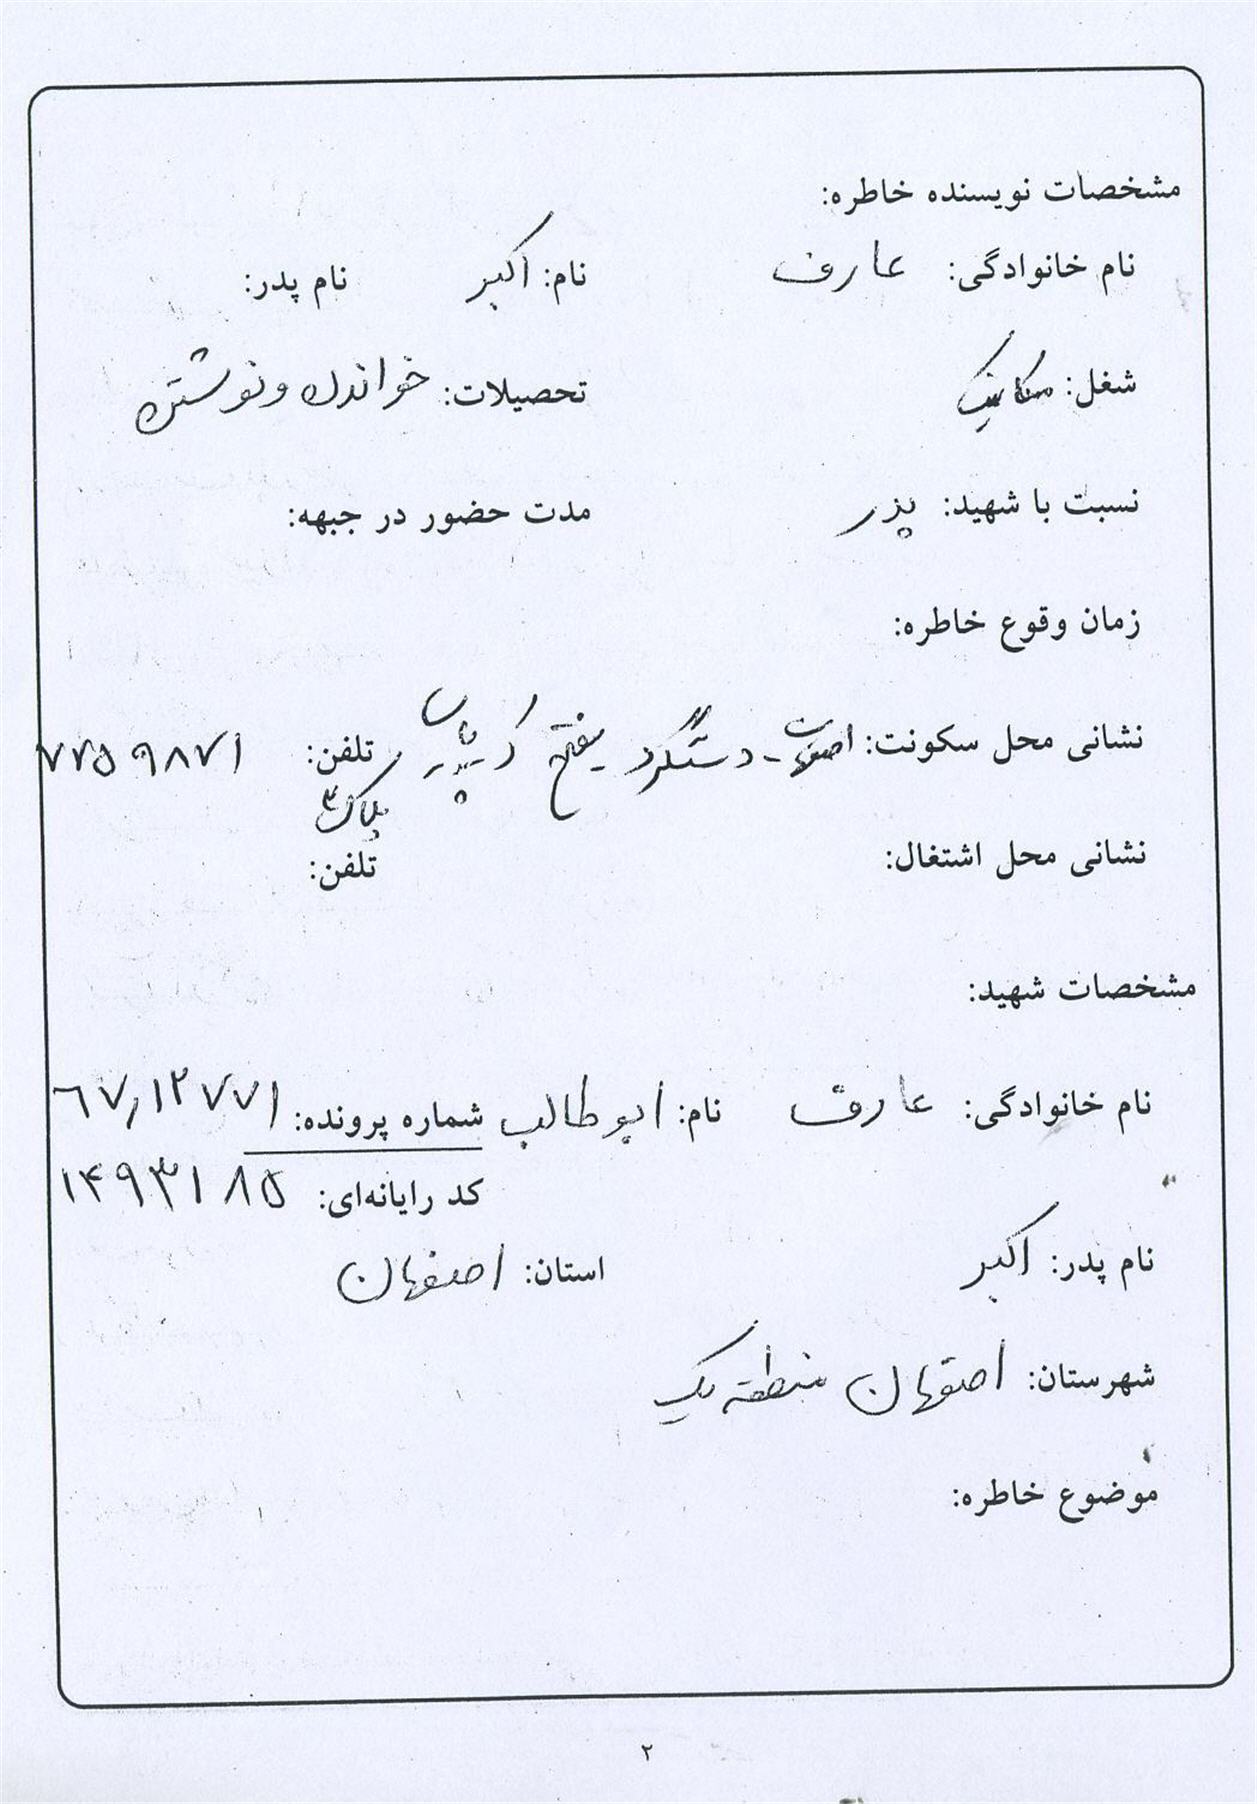 مشخصات نویسنده خاطره:
نام خانوادگی: عارف نام: اکبر نام پدر:
شغل: مکانیک تحصیلات: خواندن و نوشتن
نسبت با شهید: پدر مدت حضور در جبهه:
زمان وقوع خاطره:
نشانی محل سکونت: اصفهان - دستگرد مفتح تلفن: ۷۷۵۹۸۷۱
پلاک ۳
نشانی محل اشتغال: تلفن:
مشخصات شهید:
نام خانوادگی: عارف نام: ابوطالب شماره پرونده: ۶۷٫۱۲۷۷۱
کد رایانه‌ای: ۱۴۹۳۱۸۵
نام پدر: اکبر استان: اصفهان
شهرستان: اصفهان منطقه یک
موضوع خاطره:
۲